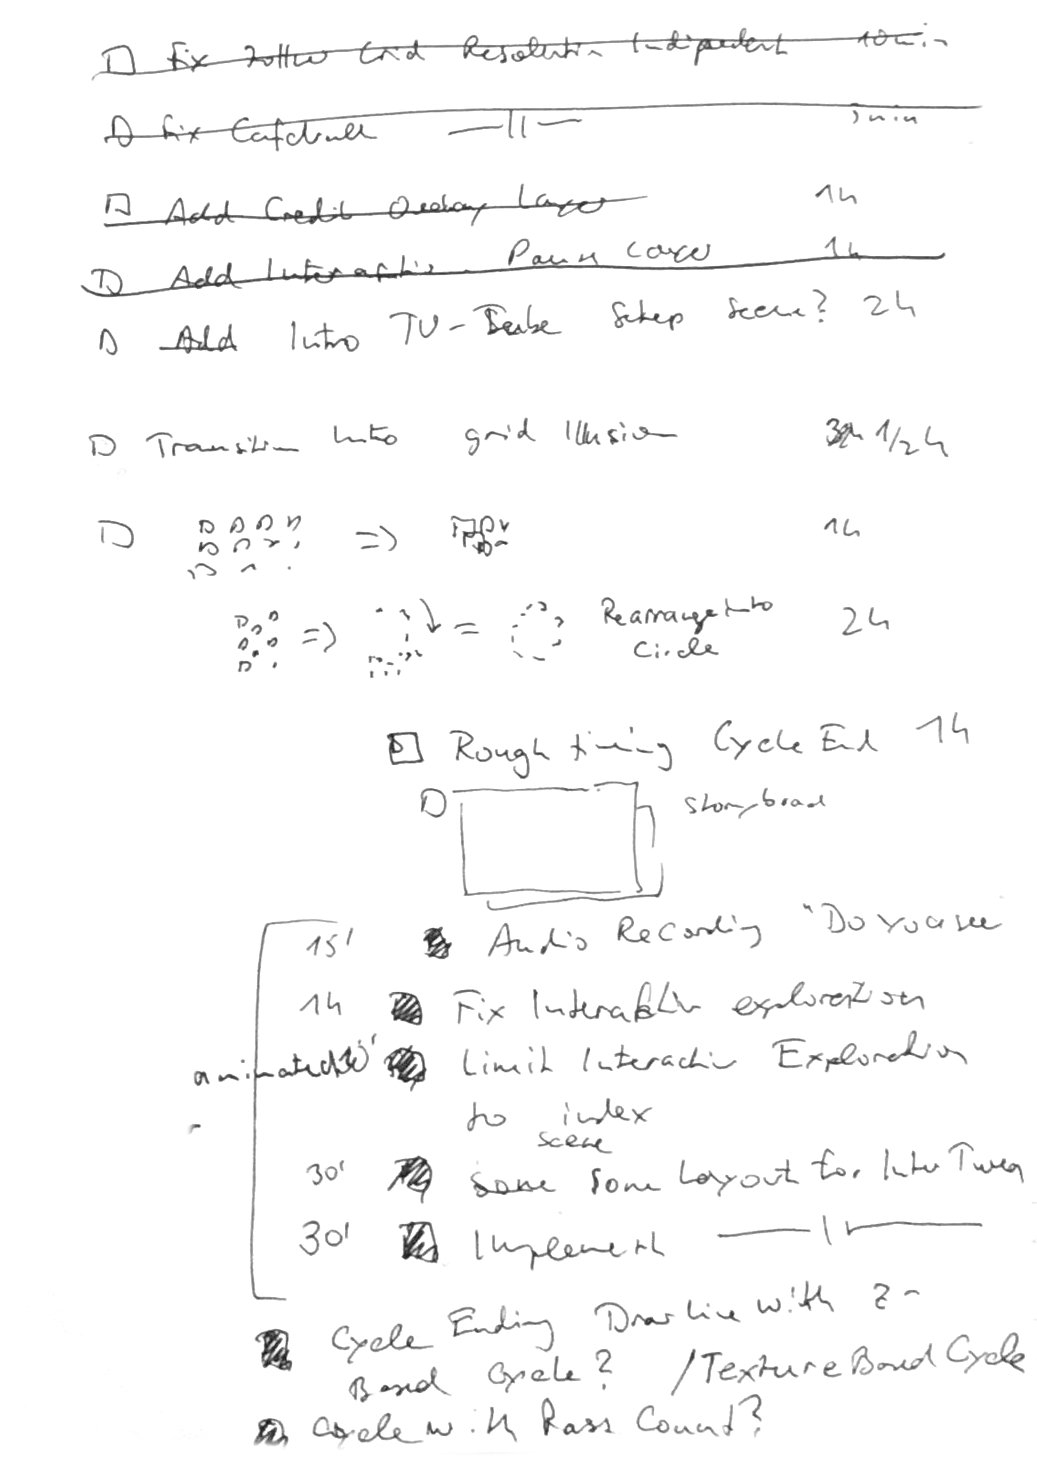 Fix Grid Resolution Indipendent 10min
Fix —||—
Add Credit Overlay Layer 1h
Add Interaktiv Pause Layer 1h
Add Intro TV-Tube Setup Scene? 2h
Transition Into grid Illusion 1/2h
=> 1h
=> = Rearrange Into 2h
Circle
Rough timing Cycle End 1h
Storyboard
15' Audio Recording "Do you see
1h Fix Interaktiv exploration
animated Limit Interactiv Exploration
to index
scene
30' Some Layout for
30' Implement —||—
Cycle Ending Draw line with z-
Based cycle? /Texture Based Cycle
Cycle with Pass Count?